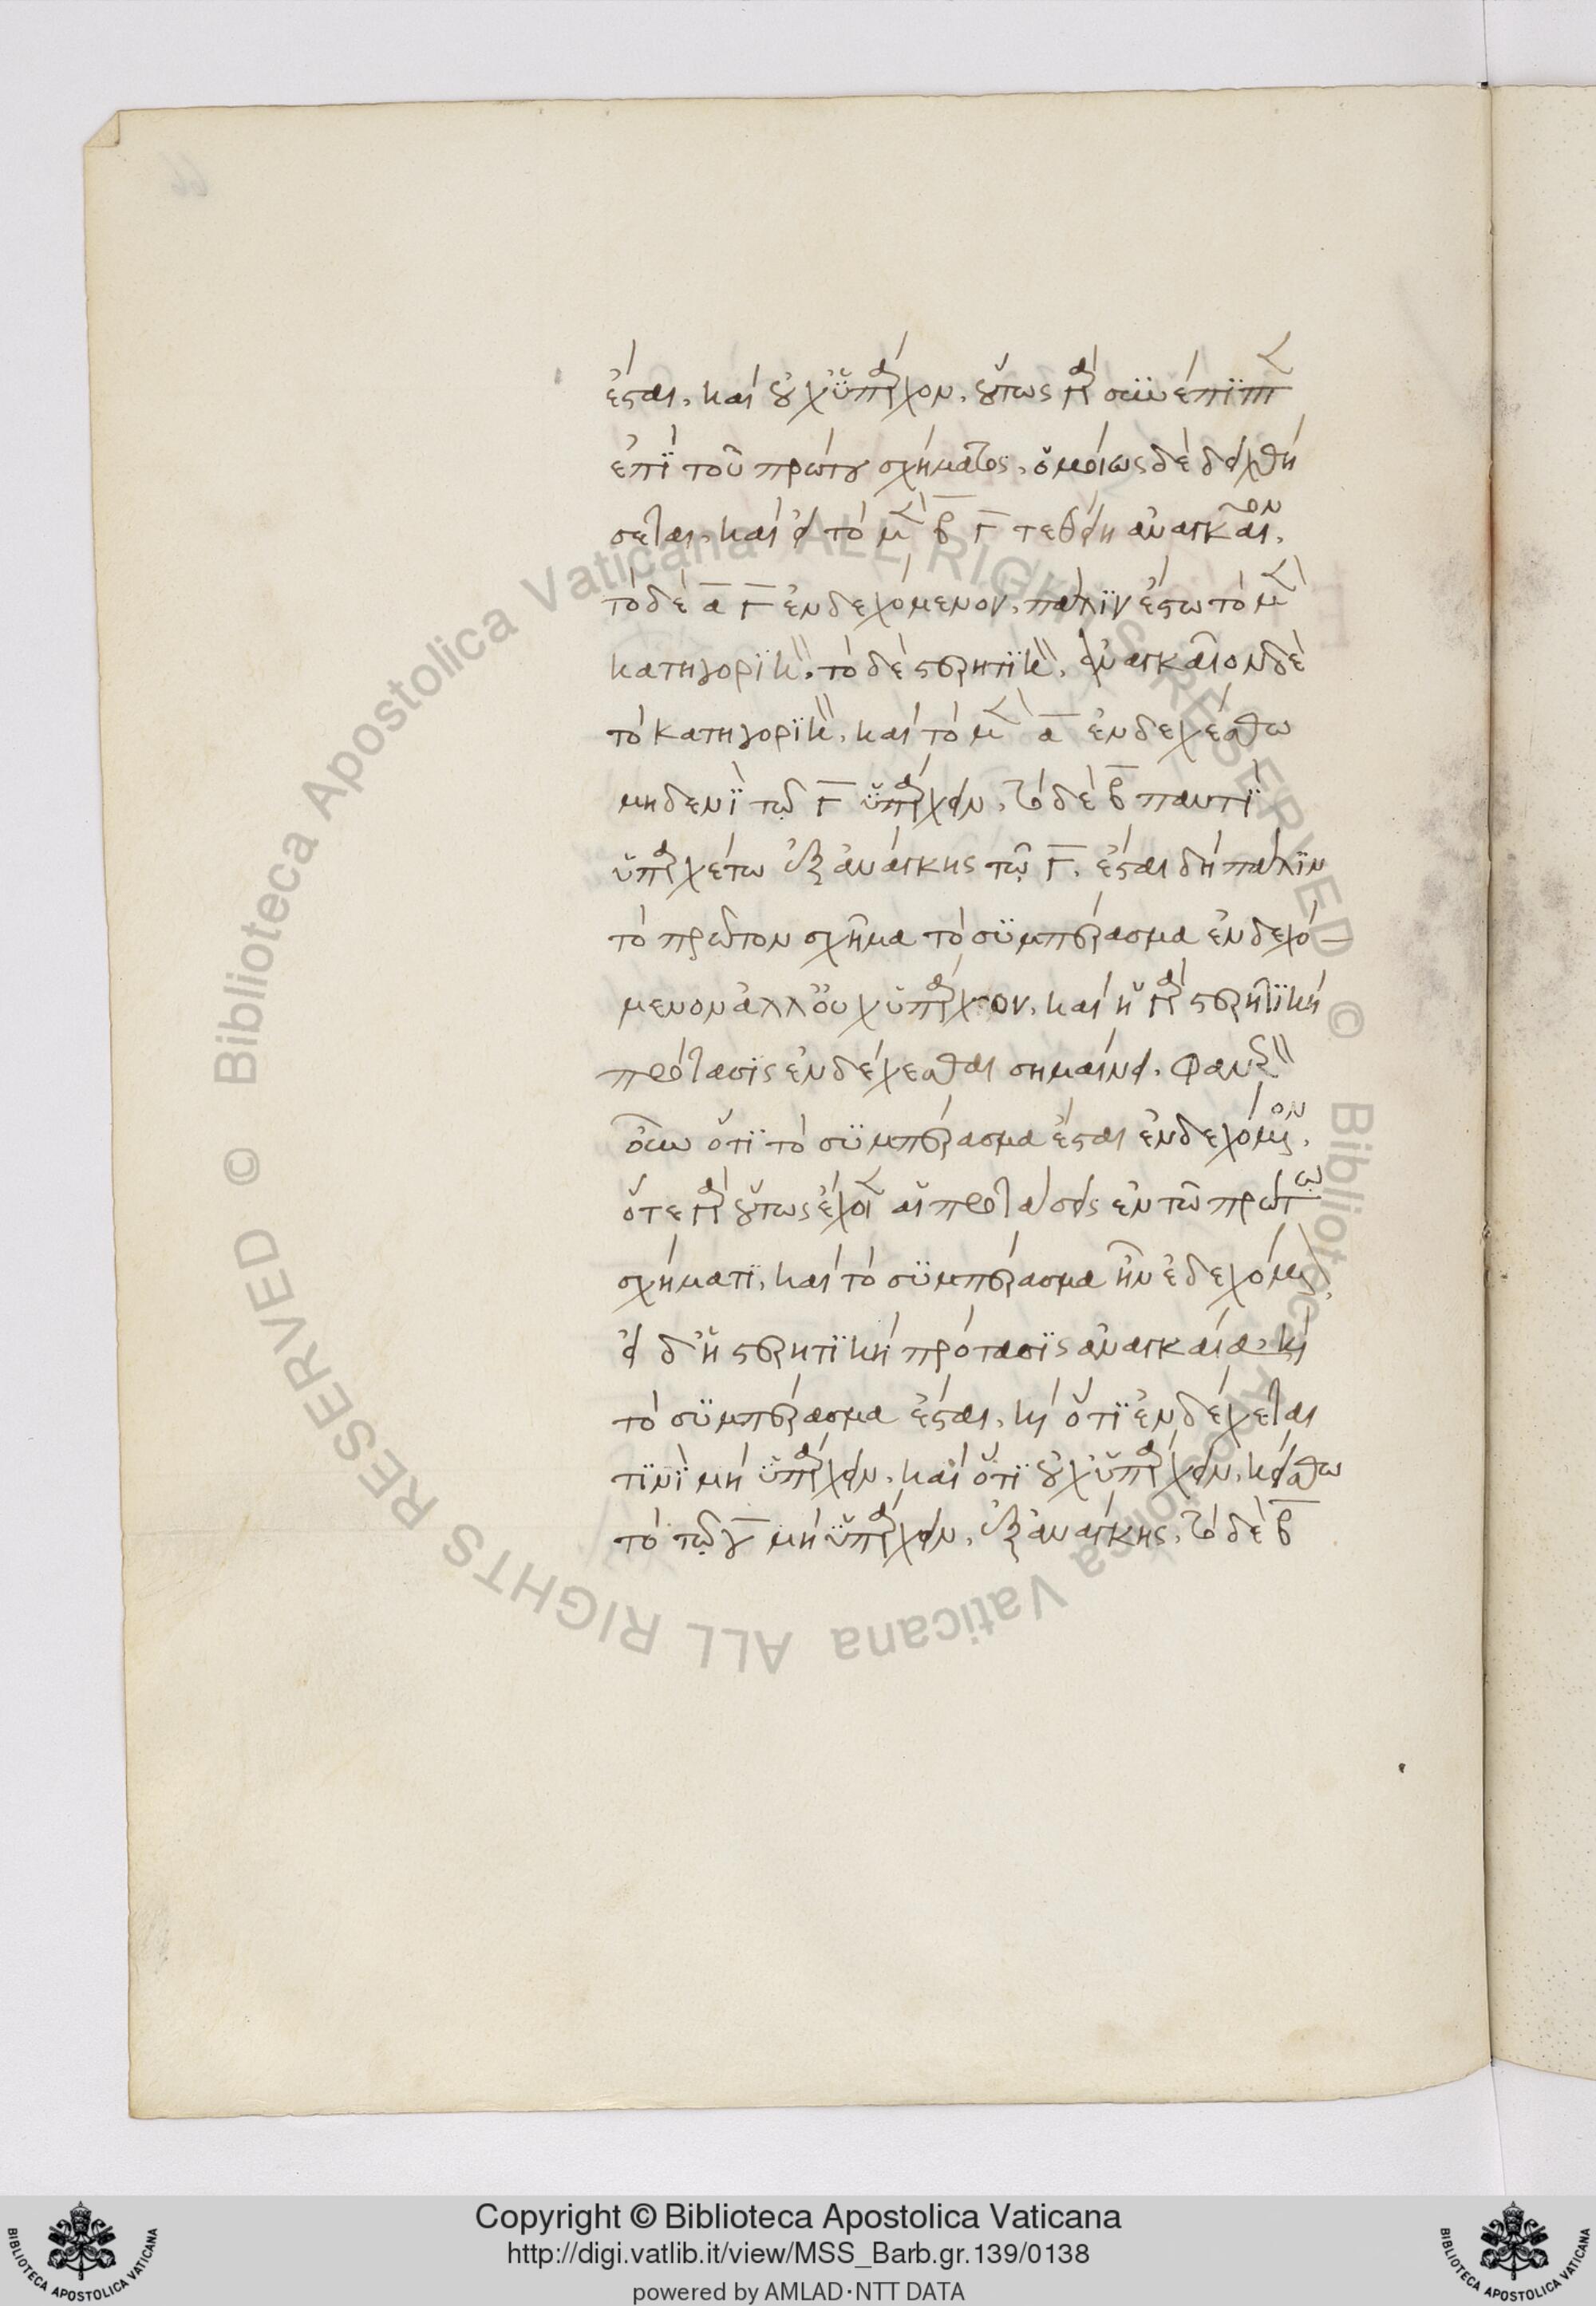 ἔσται. καὶ οὐχ ὑπάρχον. οὕτως γὰρ συνέπιπτ
ἐπὶ τοῦ πρώτου σχήματος. ὁμοίως δὲ δειχθή
σεται. καὶ εἰ τὸ μὲν β Γ τεθείη ἀναγκαῖον.
τὸ δὲ α Γ ἐνδεχόμενον. πάλιν ἔστω τὸ μὲν
κατηγορικὸν. τὸ δὲ στερητικὸν. ἀναγκαῖον δὲ
τὸ κατηγορικὸν. καὶ τὸ μὲν α ἐνδεχέσθω
μηδενὶ τῷ Γ ὑπάρχειν. τὸ δὲ β παντὶ
ὑπαρχέτω ἐξ ἀνάγκης τῷ Γ. ἔσται δὴ πάλιν
τὸ πρῶτον σχῆμα τὸ συμπέρασμα ἐνδεχό-
μενον ἀλλ' οὐχ ὑπάρχον. καὶ ἡ γὰρ στερητικὴ
πρότασις ἐνδέχεσθαι σημαίνει. φανερὸν
οὖν ὅτι τὸ συμπέρασμα ἔσται ἐνδεχόμενον.
ὅτε γὰρ οὕτως ἔχοιεν αἱ προτάσεις ἐν τῷ πρώτῳ
σχήματι. καὶ τὸ συμπέρασμα ἦν ἐδεχόμενον.
εἰ δ' ἡ στερητικὴ πρότασις ἀναγκαία. καὶ
τὸ συμπέρασμα ἔσται. καὶ ὅτι ἐνδέχεται
τινὶ μὴ ὑπάρχειν. καὶ ὅτι οὐχ ὑπάρχειν. κείσθω
τὸ τῷ γ μὴ ὑπάρχειν. ἐξ ἀνάγκης. τὸ δὲ β
Copyright © Biblioteca Apostolica Vaticana
http://digi.vatlib.it/view/MSS_Barb.gr.139/0138
powered by AMLAD·NTT DATA
BIBLIOTECA APOSTOLICA VATICANA
BIBLIOTECA APOSTOLICA VATICANA
© Biblioteca Apostolica Vaticana ALL RIGHTS RESERVED © Biblioteca Apostolica Vaticana ALL RIGHTS RESERVED